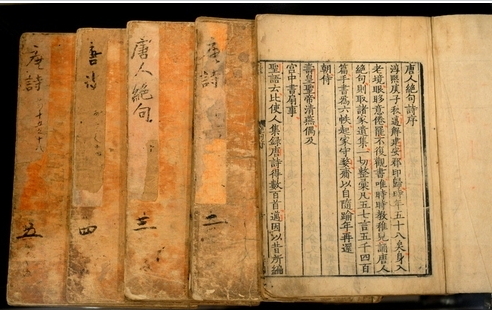 唐人絕句詩序
淳熙庚子秋邁解建安郡印歸時年五十八矣身入
老境眼眵意倦罷不復觀書唯時時教稚兒誦唐人
絕句則取諸家遺集一切彙凡五七言五千四百
篇手書爲六帙起家守婺齎以自隨踰年再還
朝侍
壽皇聖帝清燕偶及
宮中書扇事
聖語云比使人集録唐詩得數百首邁因以昔所編
唐詩
二
唐人絕句
三
唐詩
四
唐詩
五